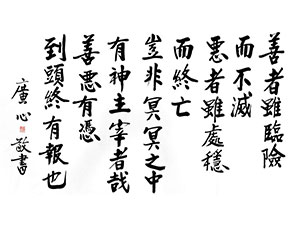 善者雖臨險
而不滅
惡者雖處穩
而終亡
豈非冥冥之中
有神主宰者哉
善惡有憑
到頭終有報也
廣心敬書